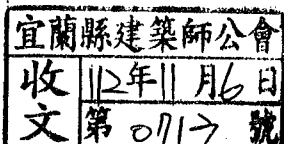 宜蘭縣建築師公會
收文
112年11月6日
第0717號